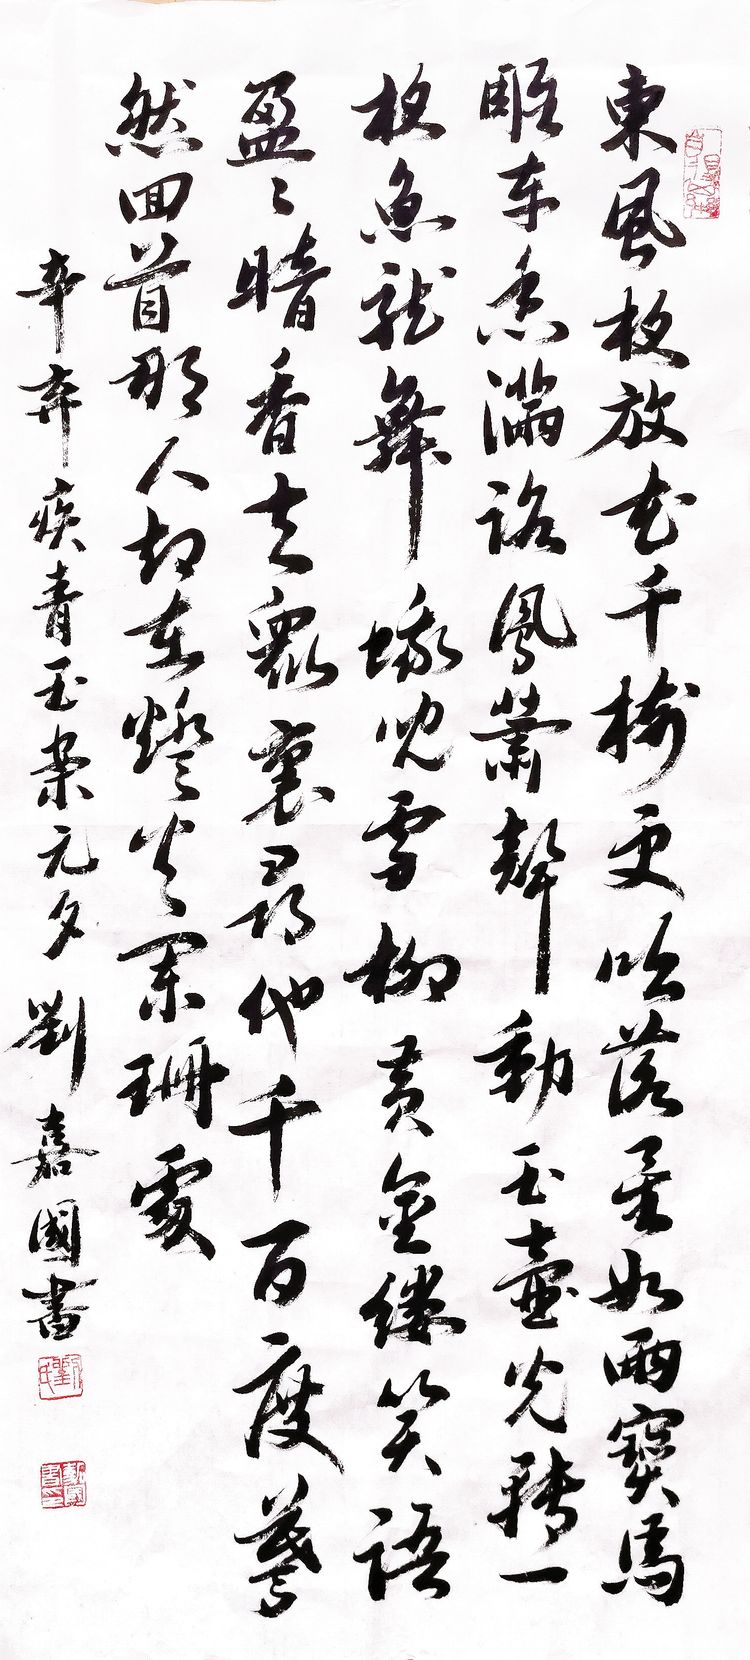 東風夜放花千樹更吹落星如雨寶馬
雕車香滿路鳳簫聲動玉壺光轉一
夜魚龍舞蛾兒雪柳黃金縷笑語
盈々暗香去眾裏尋他千百度驀
然回首那人却在燈火闌珊處
辛弃疾青玉案元夕劉嘉國書